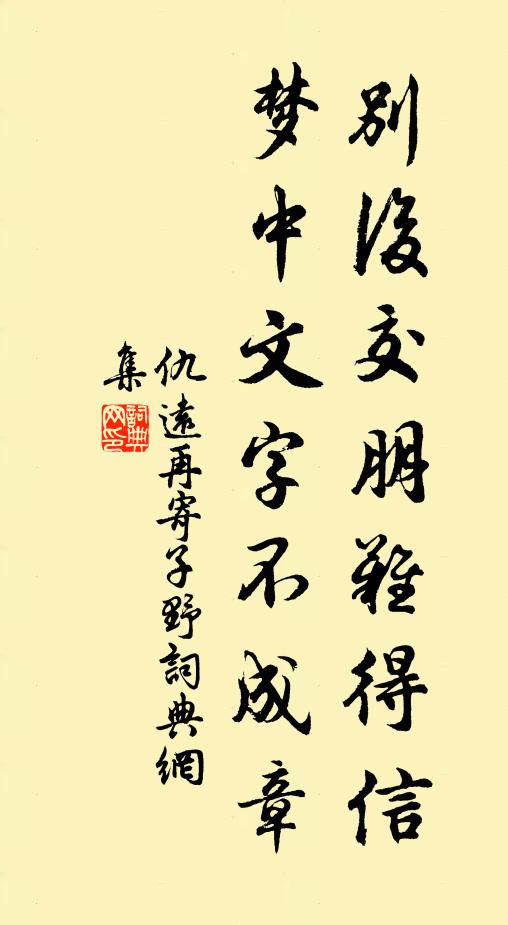 别後交朋難得信
梦中文字不成章
仇遠再寄子野詞典網
集
詞典
网印